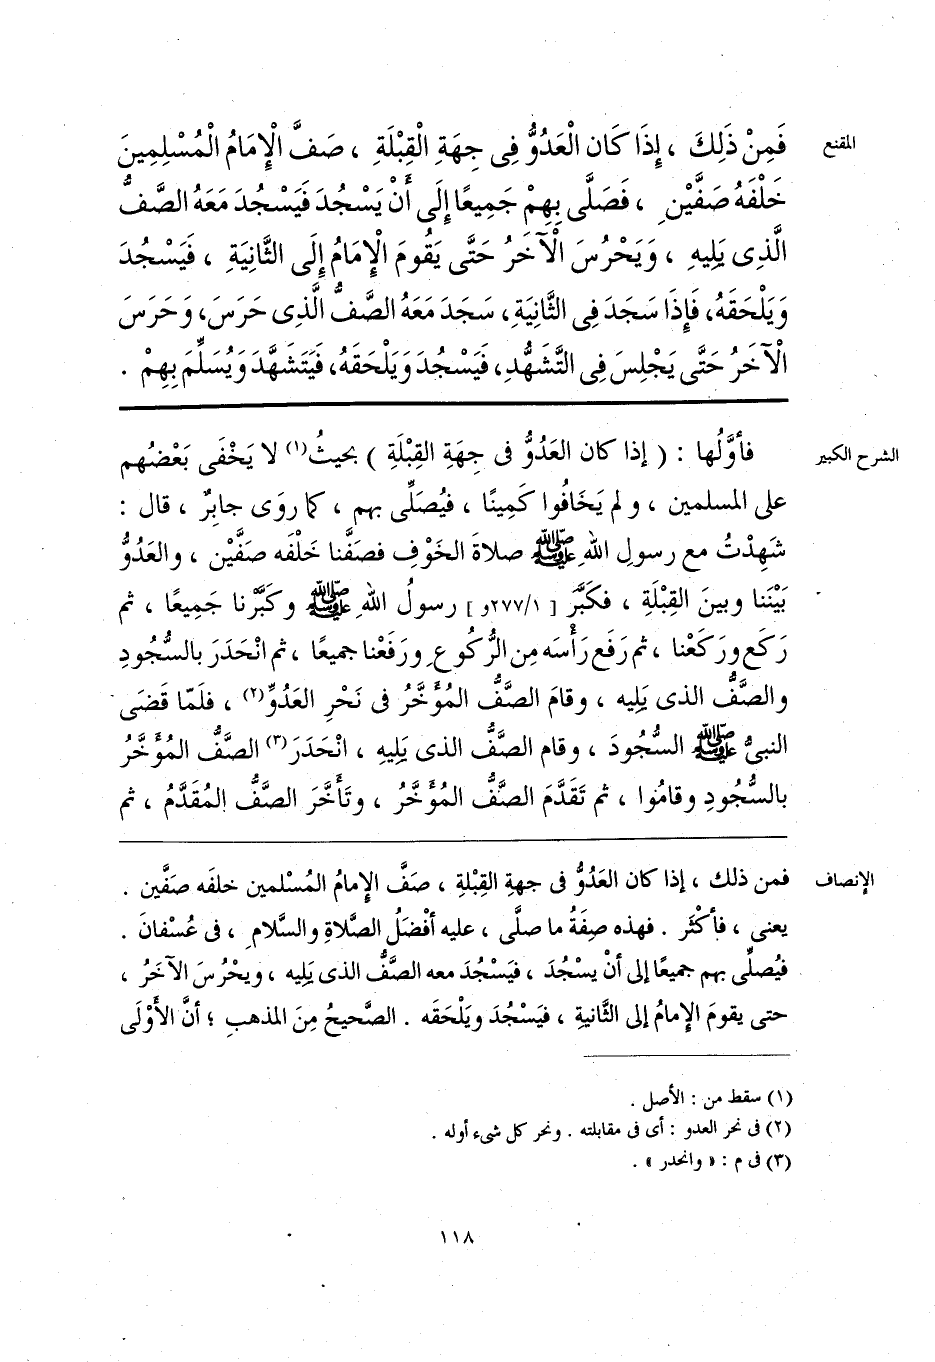 المقنع
فَمِنْ ذَلِكَ ، إِذَا كَان الْعَدُوُّ فِى جِهَةِ الْقِبْلَةِ ، صَفَّ الْإِمَامُ الْمُسْلِمِينَ
خَلْفَهُ صَفَّيْنِ ، فَصَلَّى بِهِمْ جَمِيعًا إِلَى أَنْ يَسْجُدَ فَيَسْجُدَ مَعَهُ الصَّفُّ
الَّذِى يَلِيهِ ، وَيَحْرُسَ الْآخَرُ حَتَّى يَقُومَ الْإِمَامُ إِلَى الثَّانِيَةِ ، فَيَسْجُدَ
وَيَلْحَقَهُ، فَإِذَا سَجَدَ فِى الثَّانِيَةِ، سَجَدَ مَعَهُ الصَّفُّ الَّذِى حَرَسَ، وَحَرَسَ
الْآخَرُ حَتَّى يَجْلِسَ فِى التَّشَهُّدِ، فَيَسْجُدَ وَيَلْحَقَهُ، فَيَتَشَهَّدَ وَيُسَلِّمَ بِهِمْ .
الشرح الكبير
فأوَّلُها : ( إذا كان العَدُوُّ فى جِهَةِ القِبْلَةِ ) بحيثُ(١) لا يَخْفَى بَعْضُهم
على المسلمين ، ولم يَخَافُوا كَمِينًا ، فيُصَلِّى بهم ، كما روَى جابِرٌ ، قال :
شَهِدْتُ مع رسولِ اللهِ ﷺ صلاةَ الخَوْفِ فصَفَّنا خَلْفَه صَفَّيْن ، والعَدُوُّ
بَيْنَنا وبينَ القِبْلَةِ ، فكَبَّرَ [ ٢٧٧/١و ] رسولُ اللهِ ﷺ وكَبَّرْنا جَمِيعًا ، ثم
رَكَع ورَكَعْنا ، ثم رَفَع رَأْسَه مِن الرُّكُوعِ ورَفَعْنا جميعًا ، ثم انْحَدَرَ بالسُّجُودِ
والصَّفُّ الذى يَلِيه ، وقامَ الصَّفُّ المُؤَخَّرُ فى نَحْرِ العَدُوِّ(٢) ، فلَمّا قَضَى
النبىُّ ﷺ السُّجُودَ ، وقام الصَّفُّ الذى يَلِيهِ ، انْحَدَرَ(٣) الصَّفُّ المُؤَخَّرُ
بالسُّجُودِ وقامُوا ، ثم تَقَدَّمَ الصَّفُّ المُؤَخَّرُ ، وتَأَخَّرَ الصَّفُّ المُقَدَّمُ ، ثم
الإنصاف
فمن ذلك ، إذا كان العَدُوُّ فى جهةِ القِبْلةِ ، صَفَّ الإِمامُ المُسْلمين خلفَه صَفَّين .
يعنى ، فأكْثَر . فهذه صِفَةُ ما صلَّى ، عليه أفْضَلُ الصَّلاةِ والسَّلامِ ، فى عُسْفانَ .
فيُصلِّى بهم جميعًا إلى أنْ يسْجُدَ ، فيَسْجُدَ معه الصَّفُّ الذى يَلِيه ، ويحْرُسَ الآخَرُ ،
حتى يقومَ الإِمامُ إلى الثَّانيةِ ، فيَسْجُدَ ويَلْحَقَه . الصَّحيحُ مِنَ المذهبِ ؛ أنَّ الأَوْلَى
(١) سقط من : الأصل .
(٢) فى نحر العدو : أى فى مقابلته . ونحر كل شىء أوله .
(٣) فى م : « وانحدر » .
١١٨